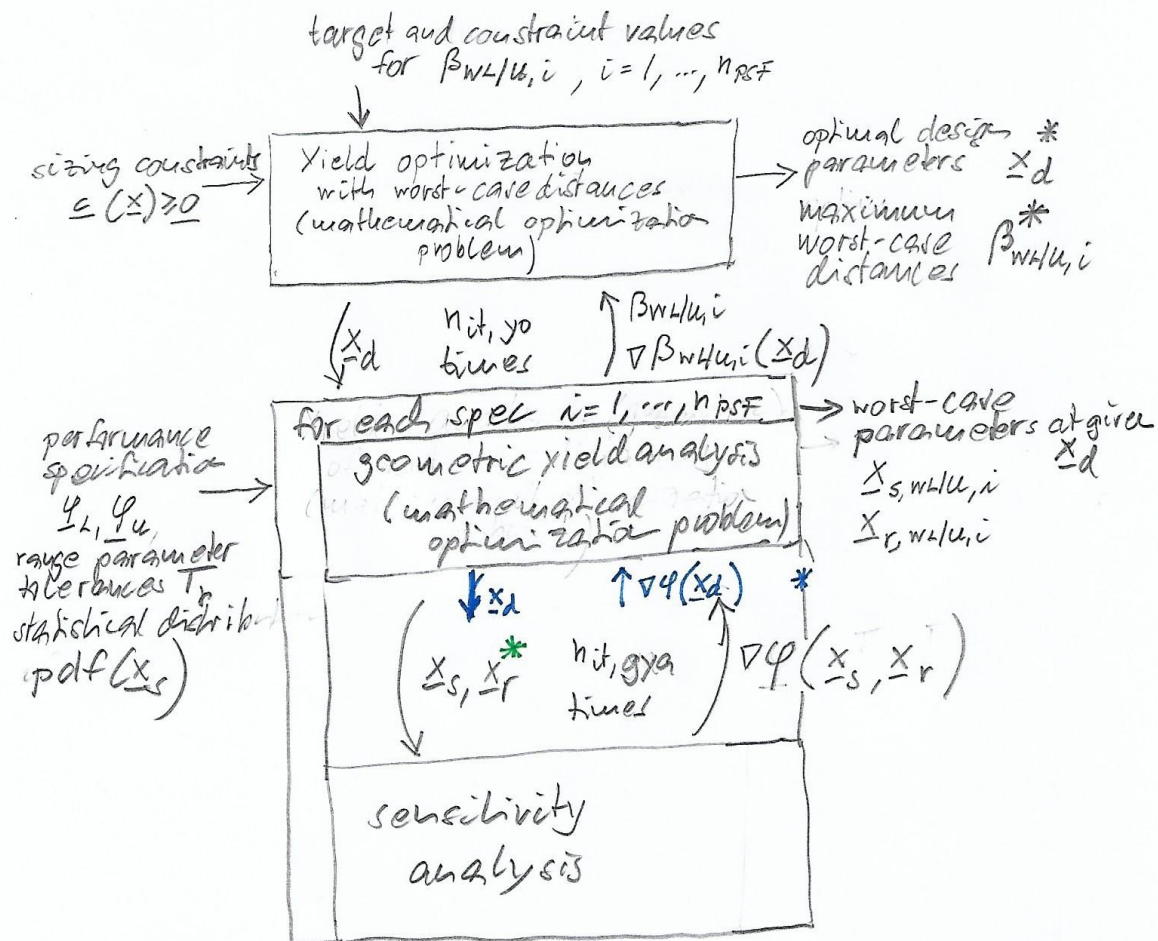 target and constraint values
for β_WL/U,i , i = 1, ..., n_PSF
sizing constraints
c(x) ≥ 0
Yield optimization
with worst-case distances
(mathematical optimization
problem)
optimal design
parameters x_d*
maximum
worst-case
distances β*_WL/U,i
x_d
n_it,yo
times
β_WL/U,i
∇β_WL/U,i(x_d)
for each spec i = 1, ..., n_PSF
geometric yield analysis
(mathematical
optimization problem)
performance
specification
φ_L, φ_U,
range parameter
tolerances T_r
statistical distrib
pdf(x_s)
worst-case
parameters at given
x_d
x_s,WL/U,i
x_r,WL/U,i
x_d
∇φ(x_d) *
x_s, x_r *
n_it,gya
times
∇φ(x_s, x_r)
sensitivity
analysis